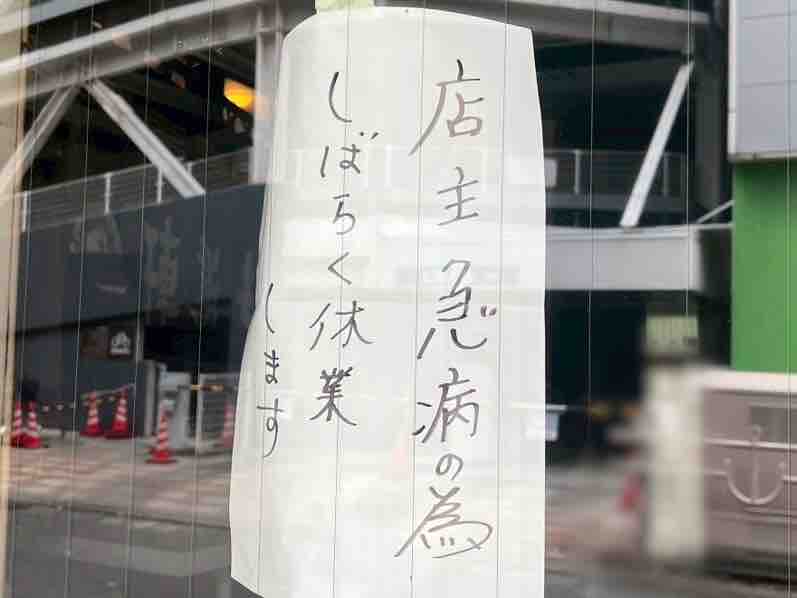 店主急病の為
しばらく休業
します